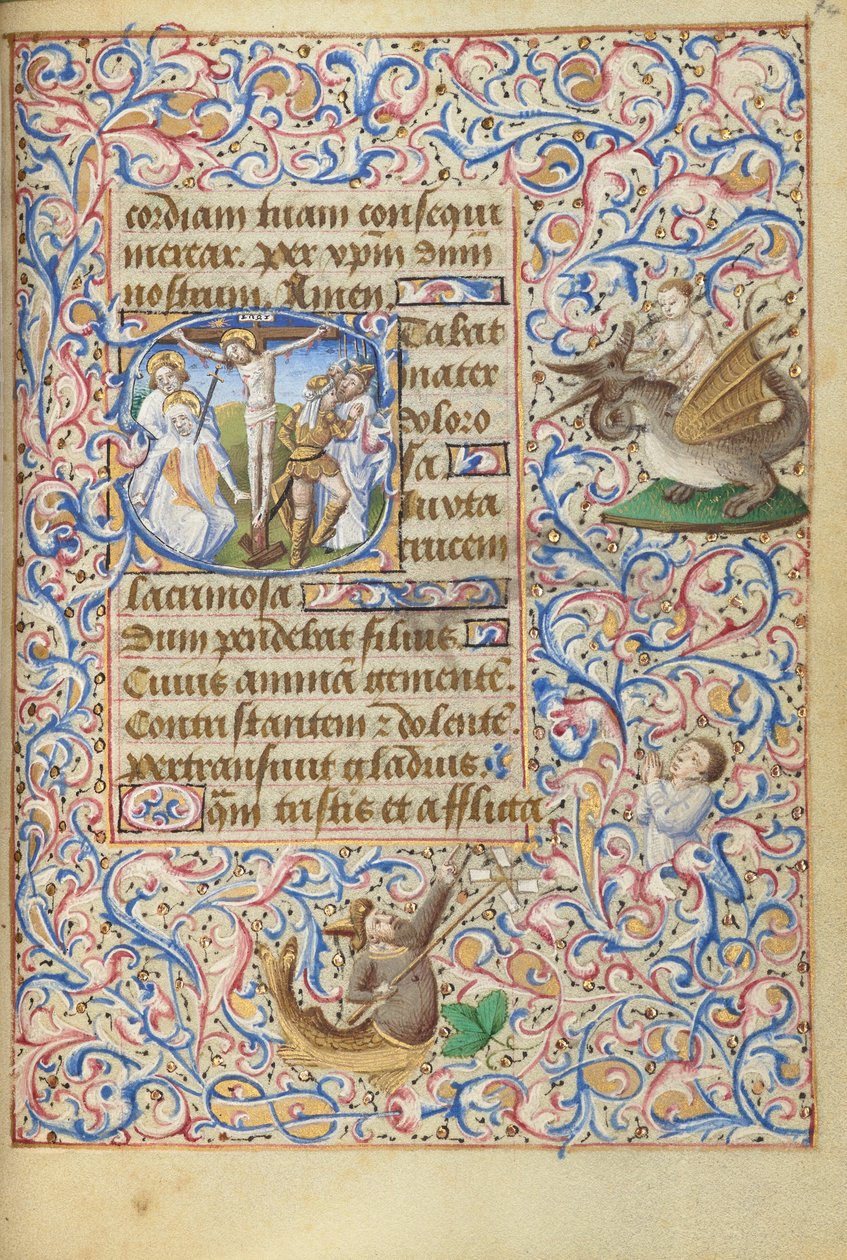 cordiam tuam consequi
mercar. per xpm dnm
nostrum. Amen.
INRI
Stabat
mater
doloro
sa
Iuxta
crucem
lacrimosa
Dum pendebat filius.
Cuius animā gementē.
Contristantem ⁊ dolentē.
Pertransiuit gladius.
O q̄m tristis et afflicta